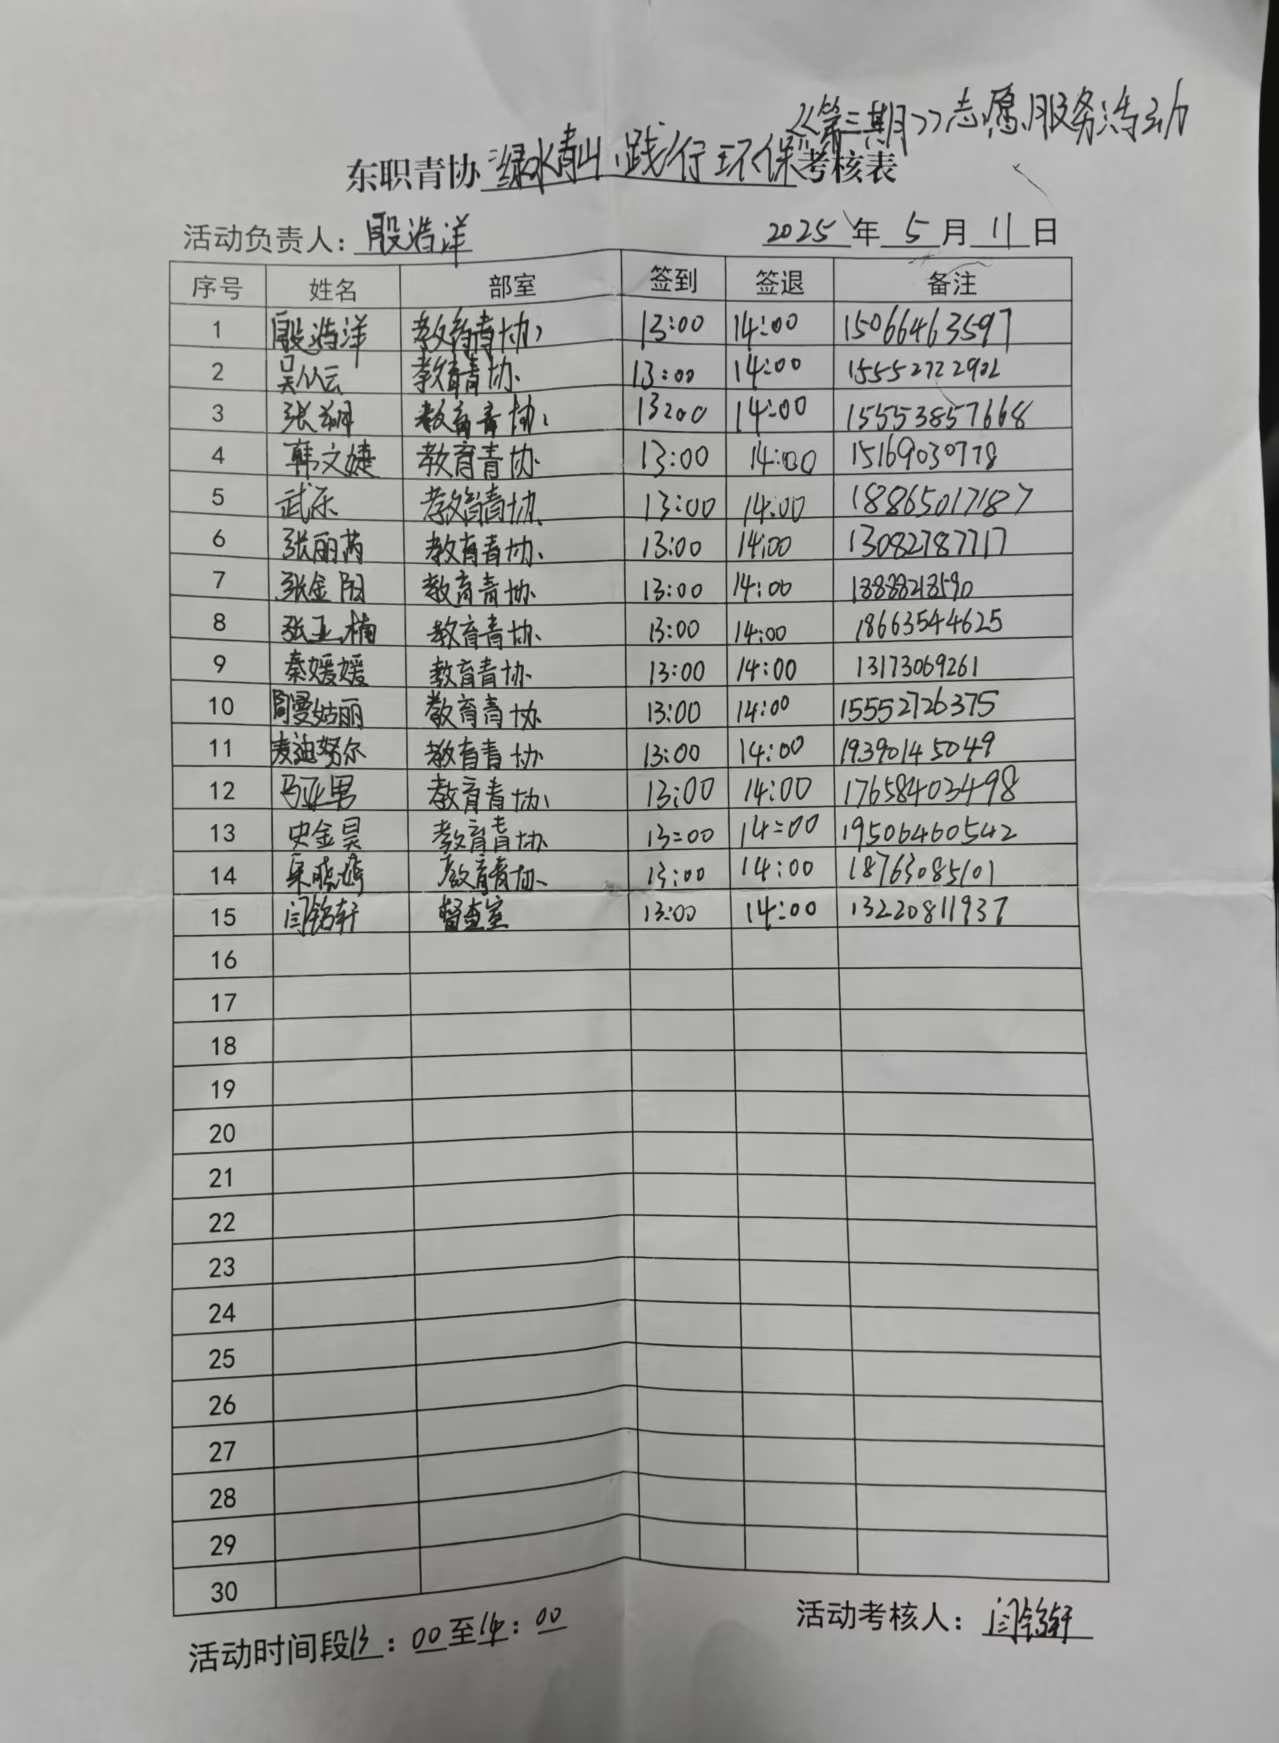 《第三期》志愿服务活动
东职青协绿水青山、践行环保考核表
活动负责人：殷浩洋 2025年5月11日
序号 姓名 部室 签到 签退 备注
1 殷浩洋 教育青协 13:00 14:00 15066463597
2 吴从云 教育青协 13:00 14:00 15552722902
3 张翔 教育青协 13:00 14:00 15553857668
4 韩文婕 教育青协 13:00 14:00 15169030778
5 武乐 教育青协 13:00 14:00 18865017187
6 张丽芮 教育青协 13:00 14:00 13082787717
7 张金阳 教育青协 13:00 14:00
8 张亚楠 教育青协 13:00 14:00 18663544625
9 秦媛媛 教育青协 13:00 14:00 13173069261
10 教育青协 13:00 14:00 15552726375
11 麦迪努尔 教育青协 13:00 14:00 19390145049
12 马亚男 教育青协 13:00 14:00 17658403498
13 史金昊 教育青协 13:00 14:00 19506460542
14 教育青协 13:00 14:00 18763085101
15 闫铭轩 督查室 13:00 14:00 13220811937
16
17
18
19
20
21
22
23
24
25
26
27
28
29
30
活动时间段13：00至14：00 活动考核人：闫铭轩